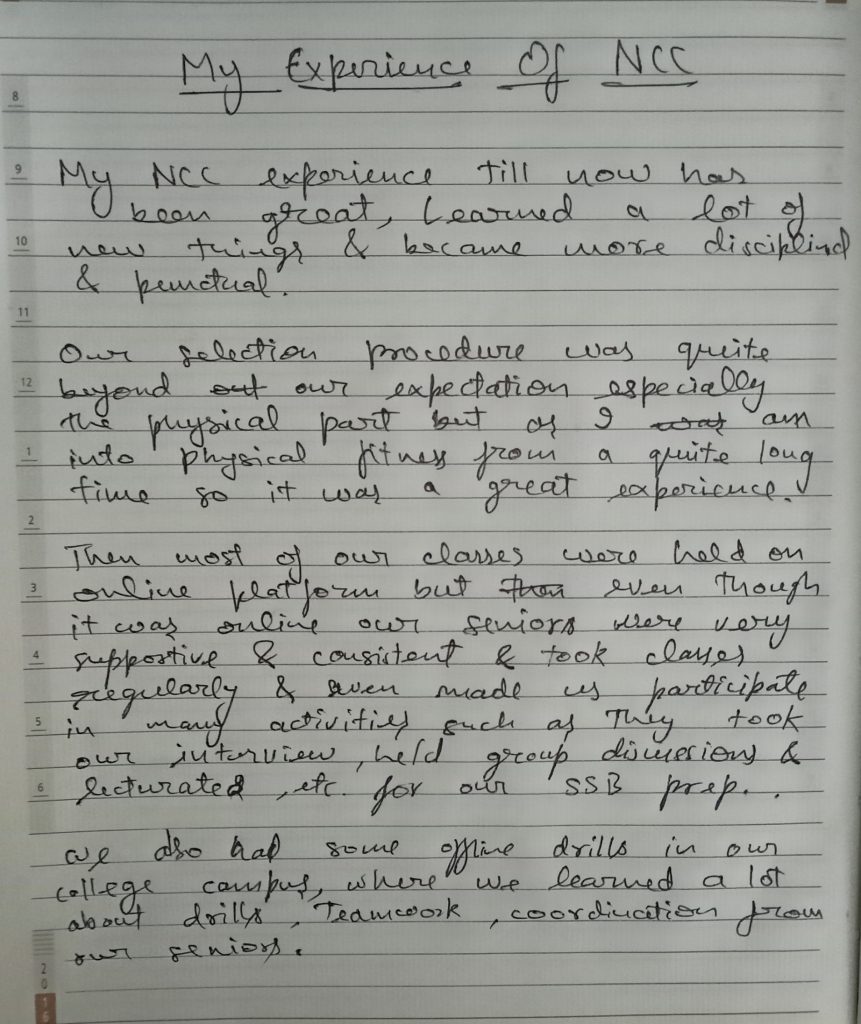 My Experience Of NCC
8
9 My NCC experience till now has
been great, Learned a lot of
10 new things & became more disciplind
& punctual.
11
Our selection procedure was quite
12 beyond out our expectation especially
the physical part but as I was am
1 into physical fitness from a quite long
time so it was a great experience.
2
Then most of our classes were held on
3 online platform but then even though
it was online our seniors were very
4 supportive & consistent & took classes
regularly & even made us participate
5 in many activities such as They took
our interview, held group discussions &
6 lecturated, etc. for our SSB prep..
we also had some offline drills in our
college campus, where we learned a lot
about drills, Teamwork, coordination from
our seniors.
2016